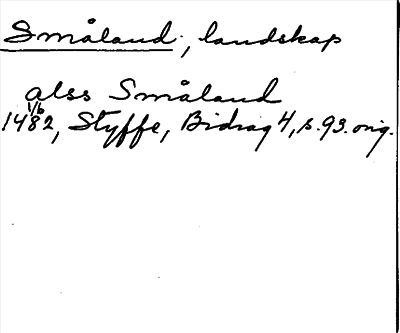 Småland, landskap
alss Småland
1/6
1482, Styffe, Bidrag 4, s. 93. orig.